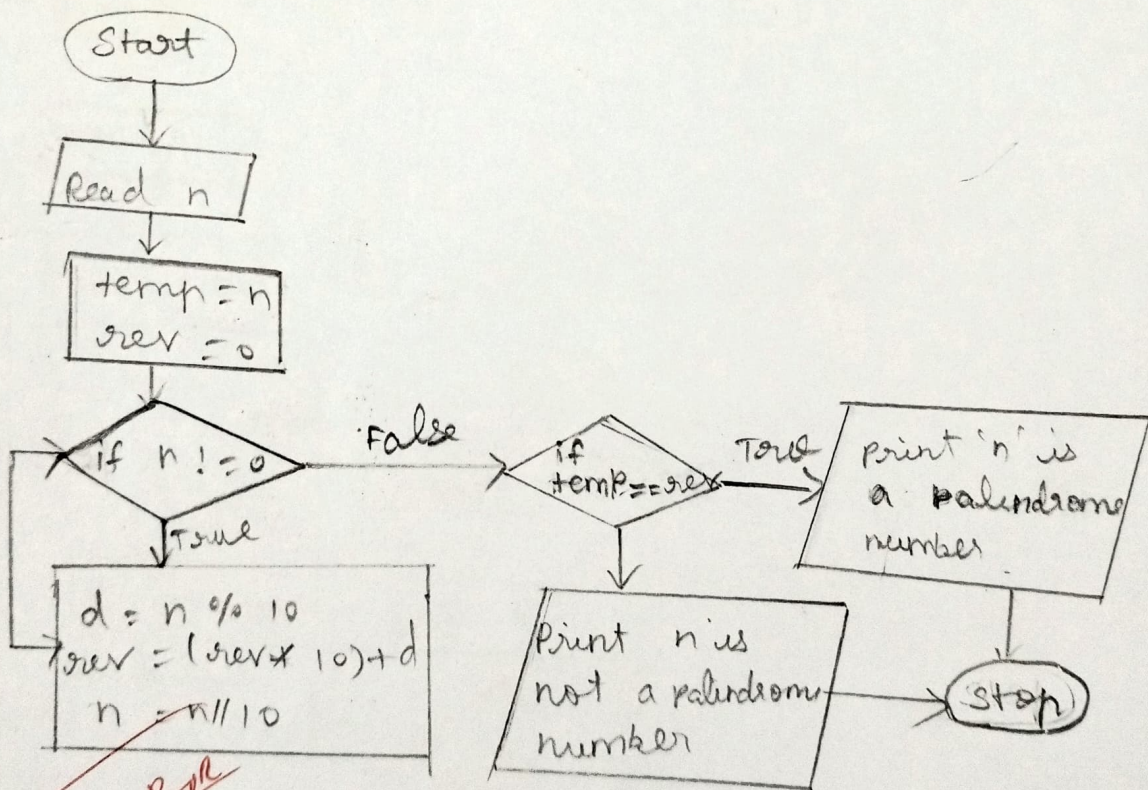 Start
Read n
temp = n
rev = 0
if n != 0
False
True
d = n % 10
rev = (rev * 10) + d
n = n // 10
if
temp == rev
True
print 'n' is
a palindrome
number
Print n is
not a palindrome
number
Stop